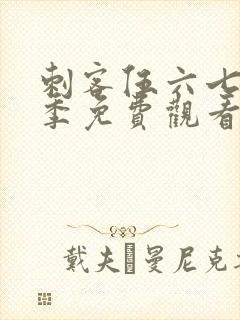 刺客伍六七
季免費觀看
戴夫·曼尼克